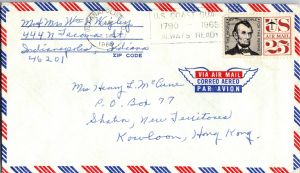 Mr & Mrs Wm A Wigley
444 N Tecoma St.
Indianapolis, Indiana
46201
ZIP CODE
U.S. COAST GUARD
1790 1965
ALWAYS READY
US
AIR MAIL
25¢
VIA AIR MAIL
CORREO AEREO
PAR AVION
Mrs Henry L. McCune
P.O. Box 77
Shatin, New Territories
Kowloon, Hong Kong.